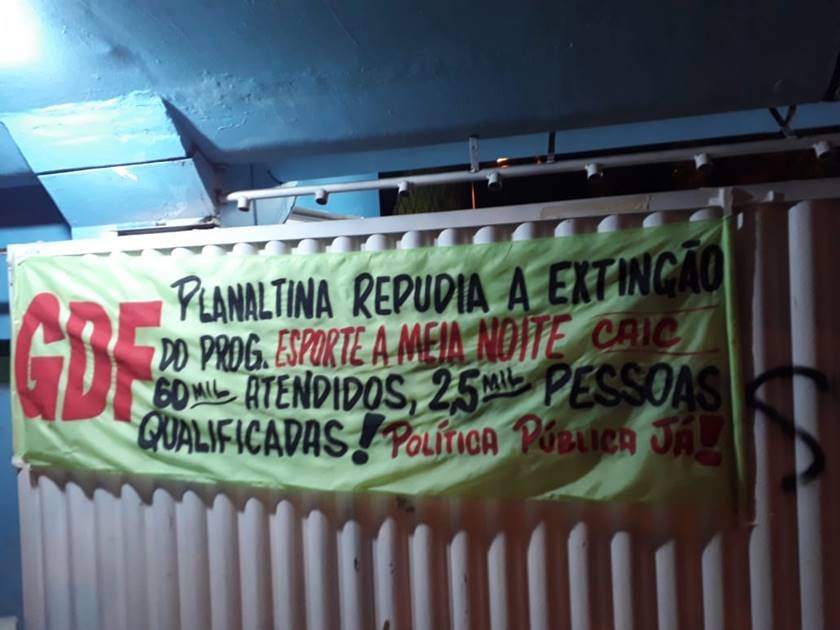 GDF
PLANALTINA REPUDIA A EXTINÇÃO
DO PROG. ESPORTE A MEIA NOITE CAIC
60 MIL ATENDIDOS, 2,5 MIL PESSOAS
QUALIFICADAS! POLÍTICA PÚBLICA JÁ!